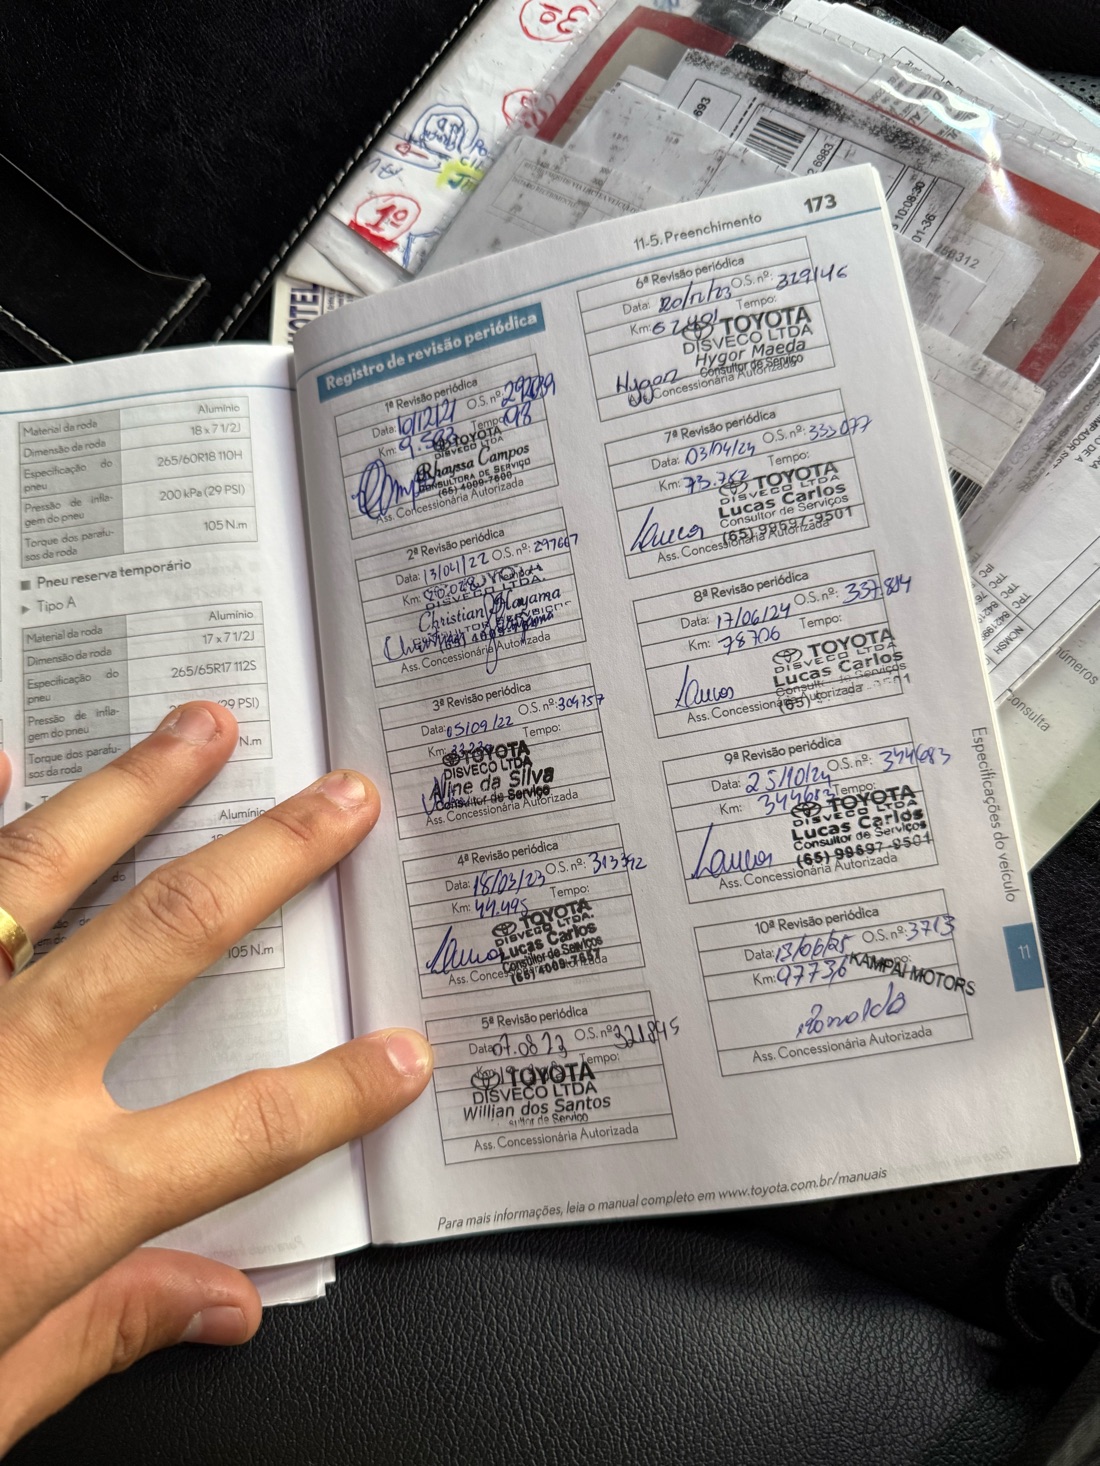 3º
1º
693
6983
10:08:30
01-36
260312
números
consulta
Material da roda
Alumínio
Dimensão da roda
18 x 7 1/2J
Especificação do pneu
265/60R18 110H
Pressão de infla-
gem do pneu
200 kPa (29 PSI)
Torque dos parafu-
sos da roda
105 N.m
■ Pneu reserva temporário
▶ Tipo A
Material da roda
Alumínio
Dimensão da roda
17 x 7 1/2J
Especificação do pneu
265/65R17 112S
Pressão de infla-
gem do pneu
(29 PSI)
Torque dos parafu-
sos da roda
N.m
Alumínio
105 N.m
11-5. Preenchimento
173
Registro de revisão periódica
1ª Revisão periódica
Data: 10/12/21 O.S. nº:
Km: Tempo:
TOYOTA
DISVECO LTDA
Rhayssa Campos
CONSULTORA DE SERVIÇO
(65) 4009-7600
Ass. Concessionária Autorizada
2ª Revisão periódica
Data: 13/04/22 O.S. nº: 297667
Km:
DISVECO LTDA.
Christian
Ass. Concessionária Autorizada
3ª Revisão periódica
Data: 05/09/22 O.S. nº: 304757
Km: Tempo:
TOYOTA
DISVECO LTDA
Aline da Silva
Consultor de Serviço
Ass. Concessionária Autorizada
4ª Revisão periódica
Data: 18/03/23 O.S. nº: 313392
Km: 44.495 Tempo:
TOYOTA
DISVECO LTDA.
Lucas Carlos
Consultor de Serviços
(65) 4009-7657
Ass. Concessionária Autorizada
5ª Revisão periódica
Data: 07.08 23 O.S. nº: 321845
Km: Tempo:
TOYOTA
DISVECO LTDA
Willian dos Santos
Ass. Concessionária Autorizada
6ª Revisão periódica
Data: 20/12/23 O.S. nº: 329146
Km: Tempo:
TOYOTA
DISVECO LTDA
Hygor Maeda
Consultor de Serviço
Hygor
Concessionária Autorizada
7ª Revisão periódica
Data: 03/04/24 O.S. nº: 333077
Km: 73.762 Tempo:
TOYOTA
DISVECO LTDA
Lucas Carlos
Consultor de Serviços
(65) 99697-9501
Ass. Concessionária Autorizada
8ª Revisão periódica
Data: 17/06/24 O.S. nº: 337.814
Km: 78706 Tempo:
TOYOTA
DISVECO LTDA
Lucas Carlos
Consultor de Serviços
Ass. Concessionária Autorizada
9ª Revisão periódica
Data: 25/10/24 O.S. nº: 344683
Km: 344683 Tempo:
TOYOTA
DISVECO LTDA
Lucas Carlos
Consultor de Serviços
(65) 99697-9501
Ass. Concessionária Autorizada
10ª Revisão periódica
Data: 13/06/25 O.S. nº: 3713
Km: 97736
KAMPAI MOTORS
Ronaldo
Ass. Concessionária Autorizada
Especificações do veículo
11
Para mais informações, leia o manual completo em www.toyota.com.br/manuais